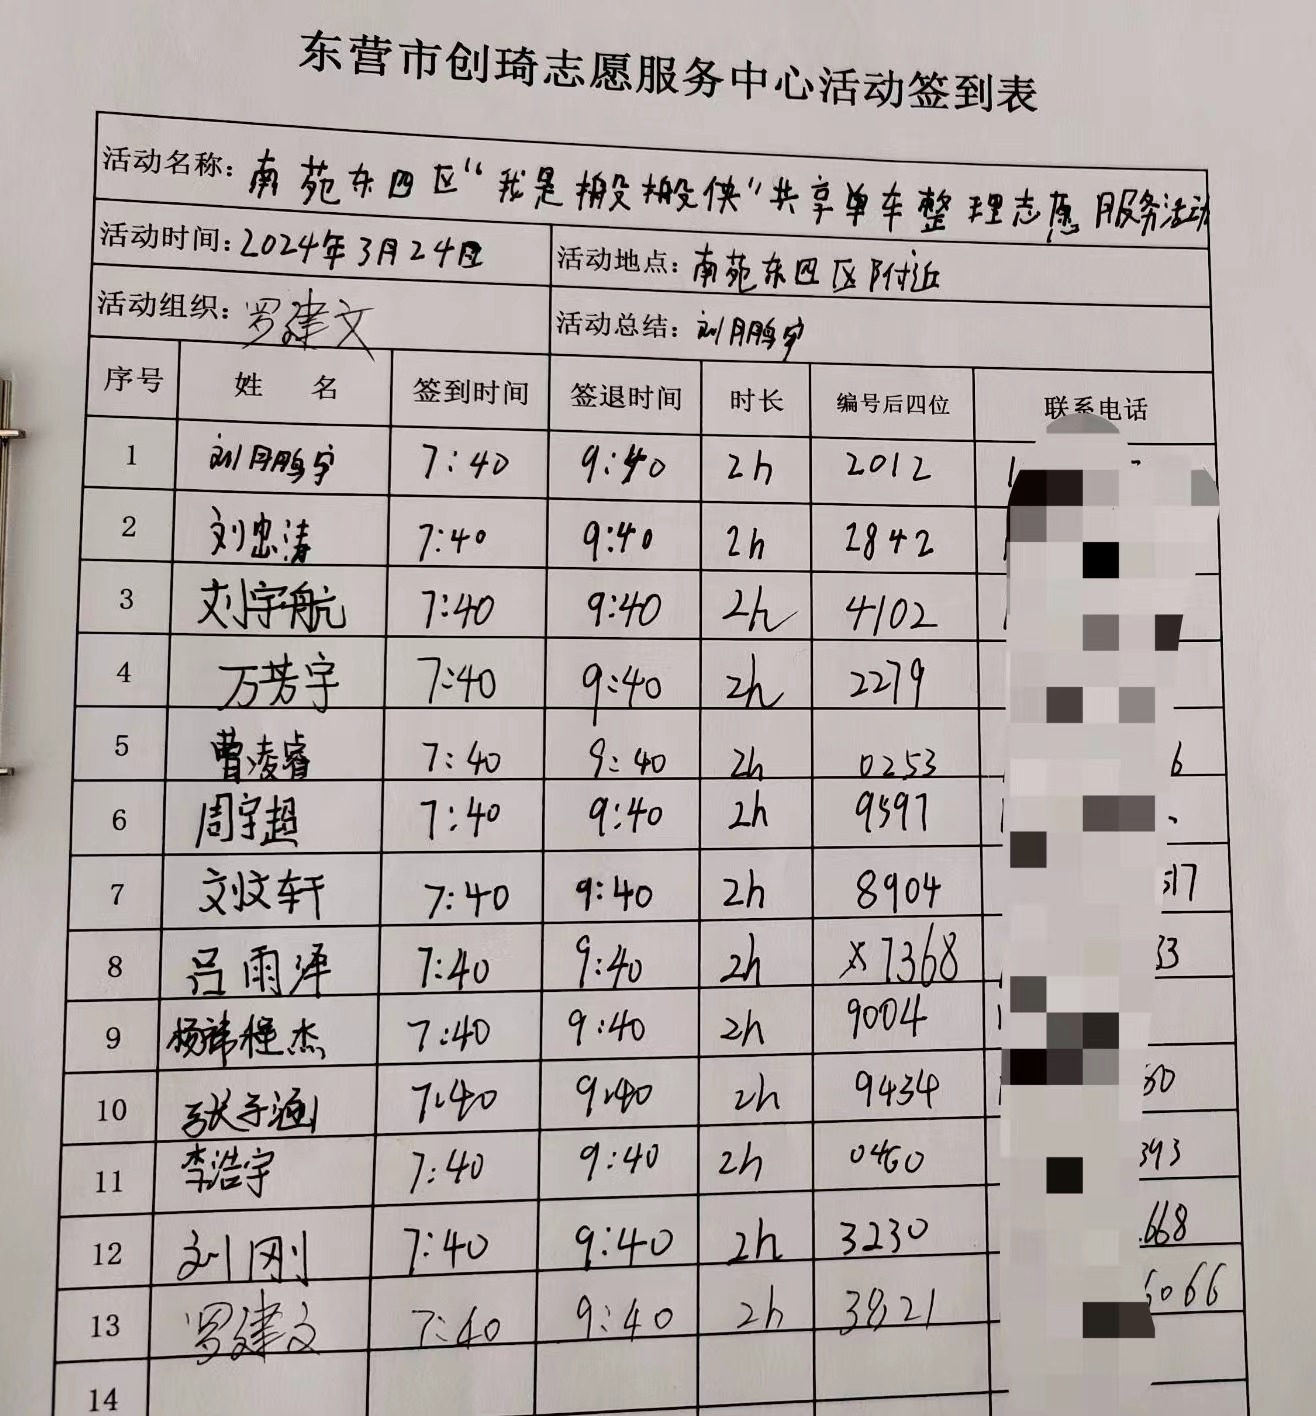 东营市创琦志愿服务中心活动签到表
活动名称：南苑东四区“我是搬搬侠”共享单车整理志愿服务活动
活动时间：2024年3月24日 活动地点：南苑东四区附近
活动组织：罗建文 活动总结：刘鹏宇
序号 姓 名 签到时间 签退时间 时长 编号后四位 联系电话
1 刘鹏宇 7:40 9:40 2h 2012
2 刘忠涛 7:40 9:40 2h 2842
3 刘宇航 7:40 9:40 2h 4102
4 万芳宇 7:40 9:40 2h 2279
5 曹凌睿 7:40 9:40 2h 0253 6
6 周宇超 7:40 9:40 2h 9597
7 刘文轩 7:40 9:40 2h 8904 517
8 吕雨泽 7:40 9:40 2h 7368 33
9 杨祎程杰 7:40 9:40 2h 9004
10 张子涵 7:40 9:40 2h 9434 50
11 李浩宇 7:40 9:40 2h 0460 393
12 刘刚 7:40 9:40 2h 3230 668
13 罗建文 7:40 9:40 2h 3821 6066
14